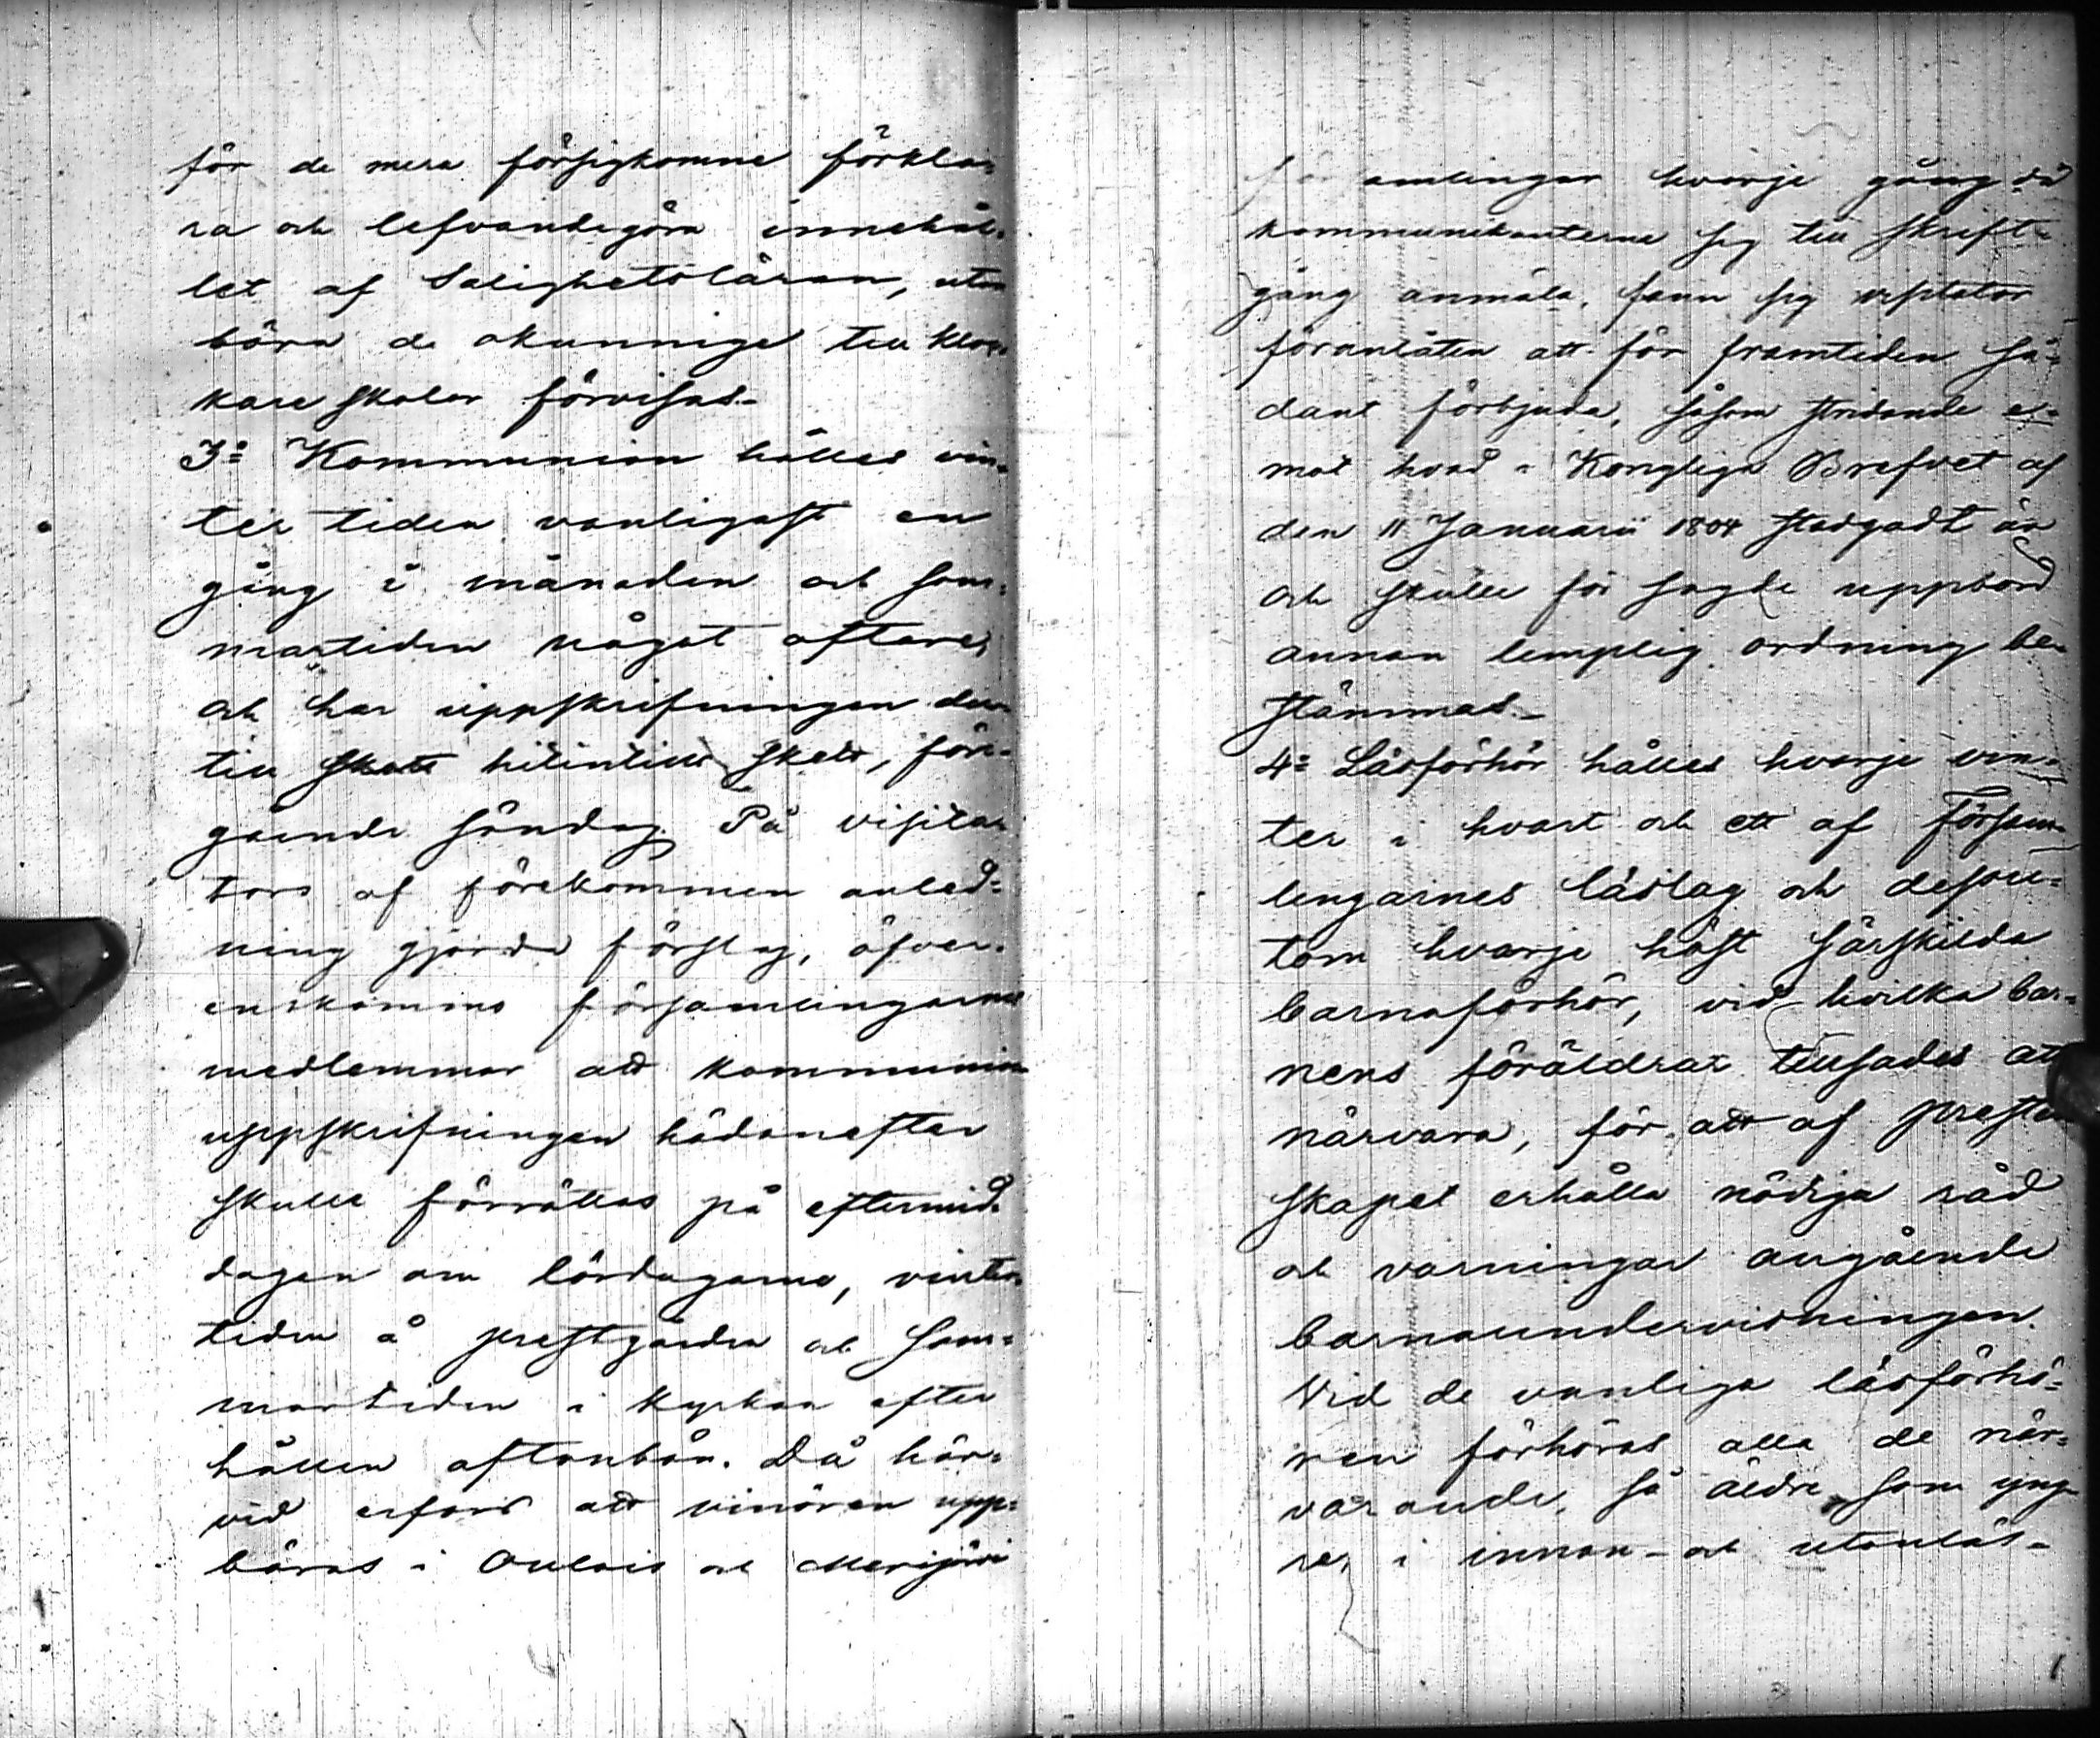 för de mera försigkomne förkla-
ra och lefvandegöra innehål-
let af Salighetsläran, utan
böra de okunnige till Kloc-
kare skolan förvisas-
3:o Kommunion hålles vin-
ter tiden vanligast en
gång i månaden och som-
martiden något oftare,
och har uppskrifningen der-
till skett hitintills skett, före-
gående söndag. På visita-
tors af förekommen anled-
ning gjorda förslag, öfver-
enskommo församlingarnes
medlemmar att kommunion
uppskrifningen hädanefter
skulle förrättas på eftermid-
dagen om lördagarne, vinter-
tiden å prestgården och som-
martiden i kyrkan efter
hållen aftonbön. Då här-
vid erfors att vinören upp-
bäras i Oulais och Merijärvi
församlingar hvarje gång då
kommunikanterne sig till skrift-
gång anmäla, fann sig visitator
föranlåten att för framtiden så-
dant förbjuda, såsom stridande e-
mot hvad i Kongliga Brefvet af
den 11 Januarii 1804 stadgadt är
och skulle för sagde uppbörd
annan lemplig ordning be-
stämmas.-
4:o Läsförhör hålles hvarje vin-
ter i hvart och ett af Försam-
lingarnes läslag och dessu-
tom hvarje höst särskilda
barnaförhör, vid hvilka bar-
nens föräldrar tillsades att
närvara, för att af prester-
skapet erhålla nödiga råd
och varningar angående
barnaundervisningen.
Vid de vanliga läsförhö-
ren förhöras alla de när-
varande, så äldre som yng-
re, i innan- och utanläs-